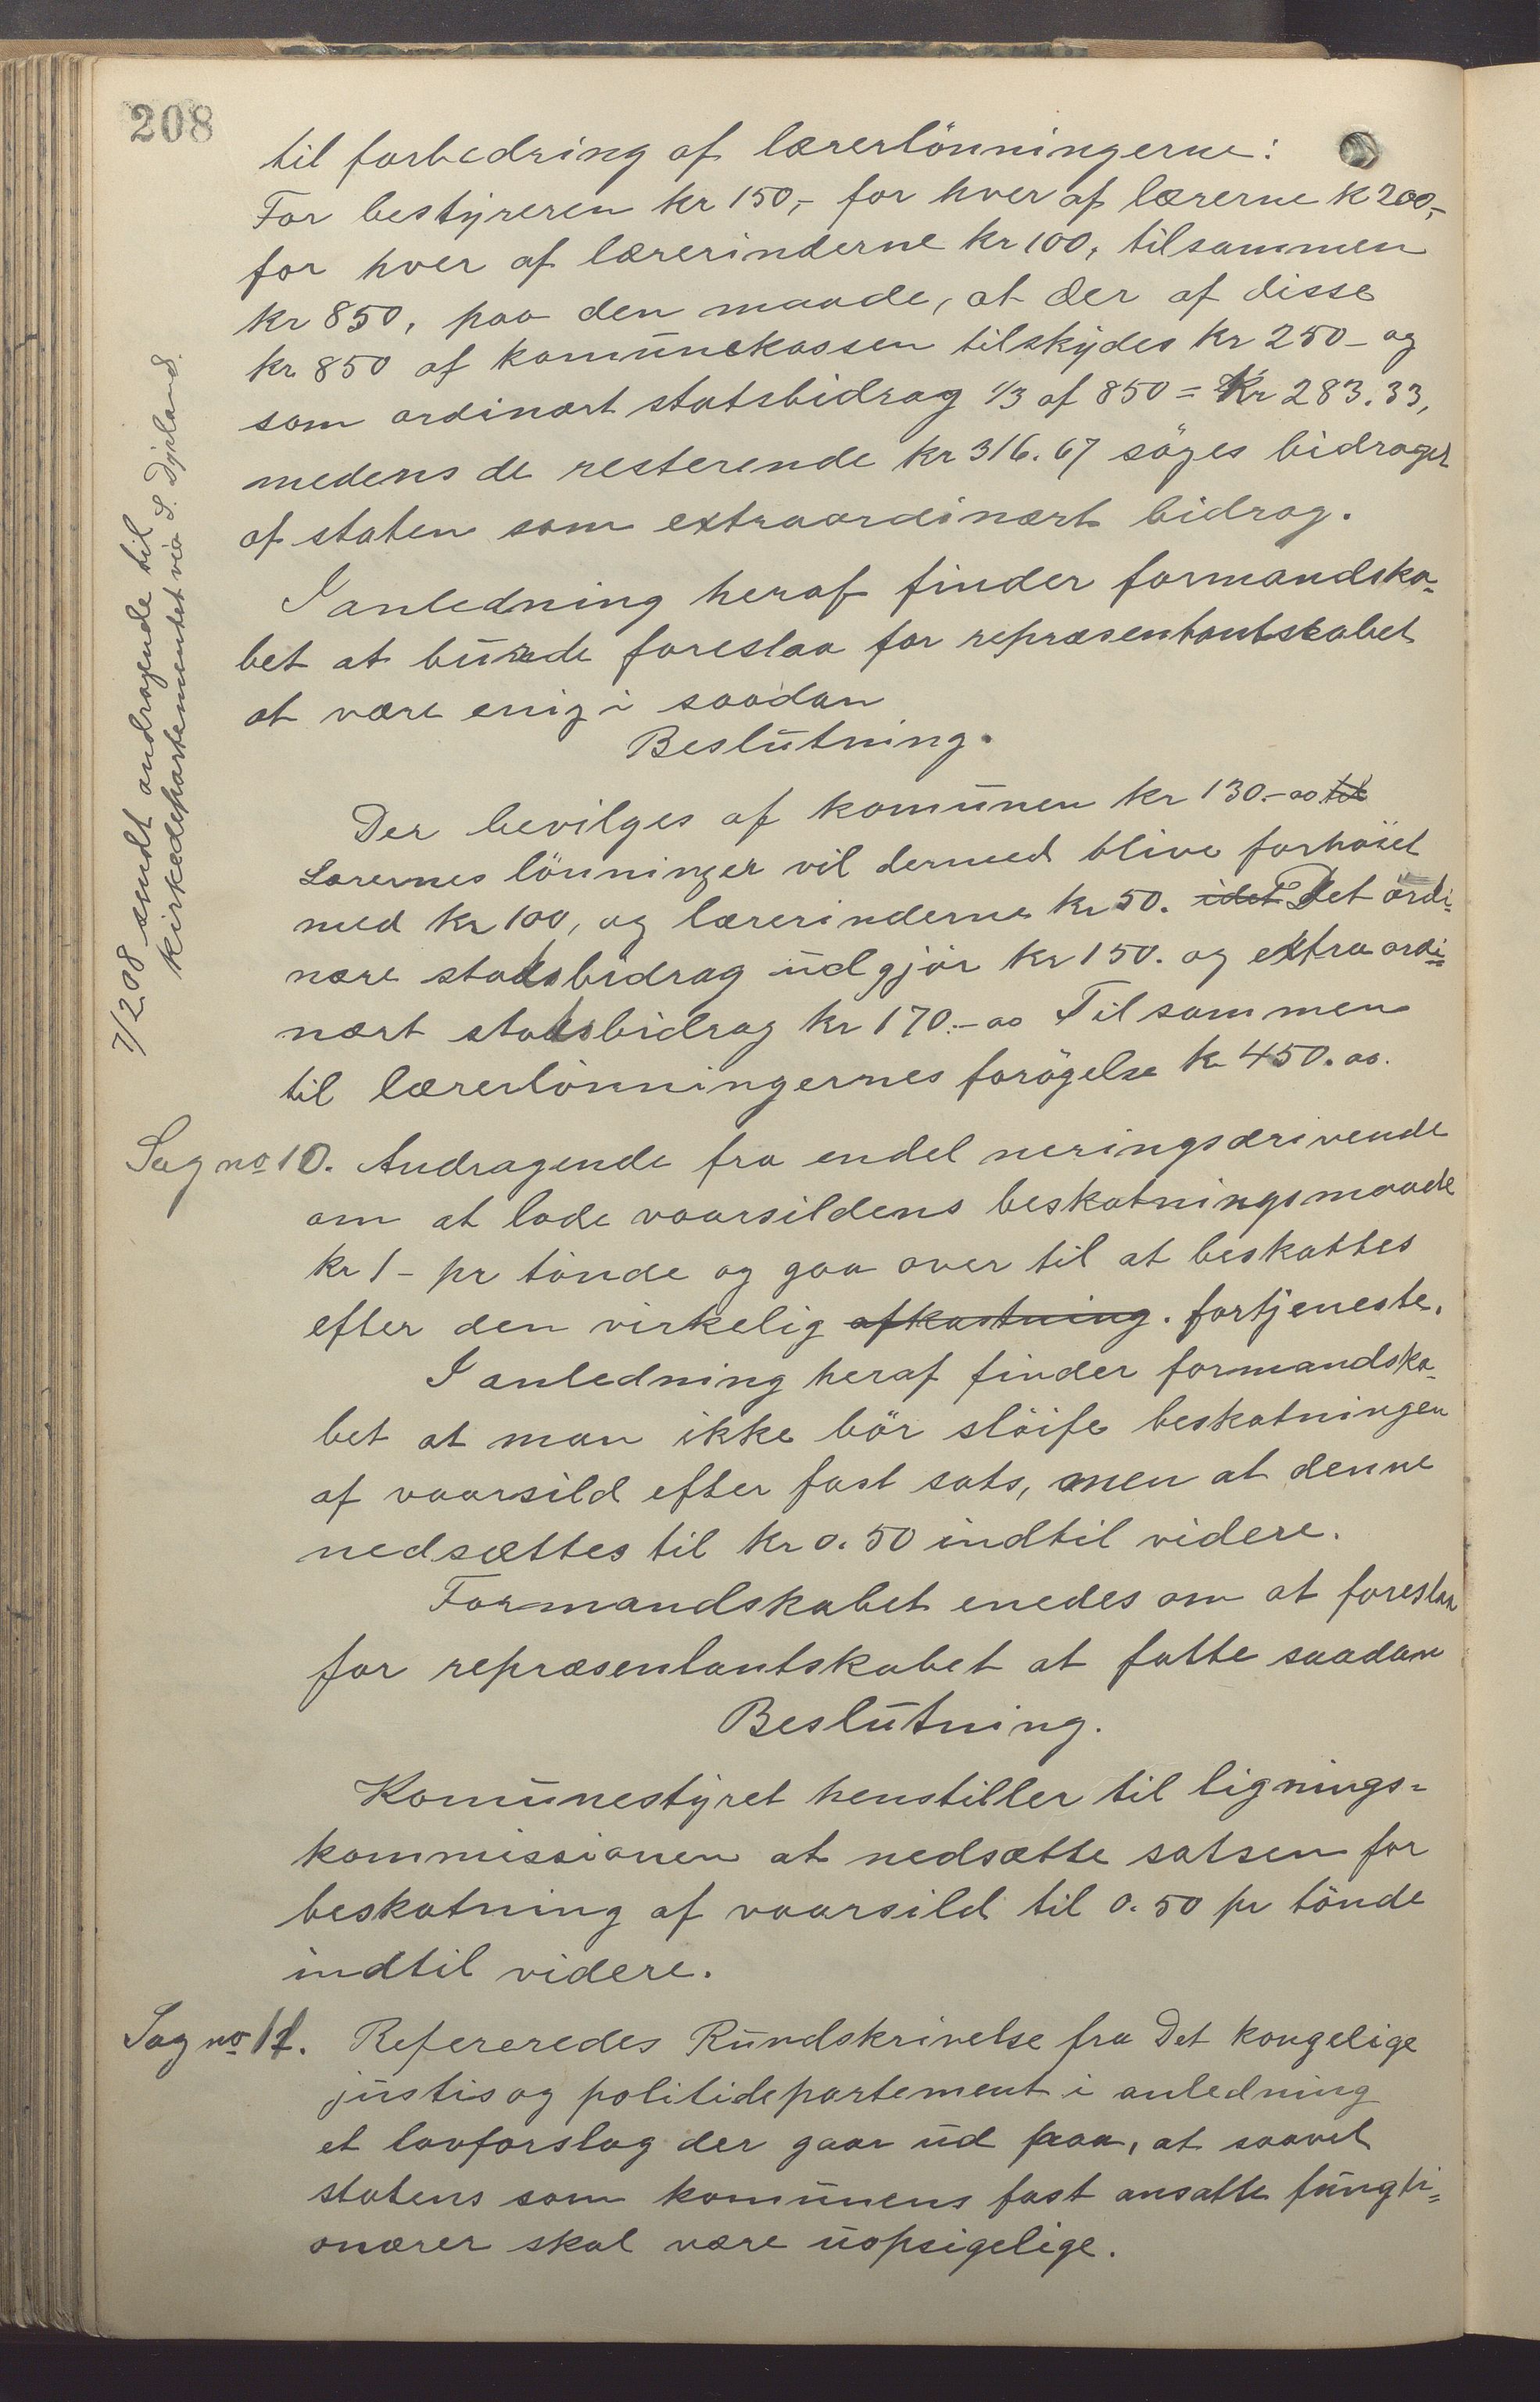 208
til forbedring af lærerlönningerne:
For bestyreren kr 150,- for hver af lærerne k 200,-
for hver af lærerinderne kr 100, tilsammen
kr 850, paa den maade, at der af disse
kr 850 af komunekassen tilskydes kr 250- og
som ordinært statsbidrag 1/3 af 850 = Kr 283.33,
medens de resterende kr 316.67 söges bidraget
af staten som extraordinært bidrag.
I anledning heraf finder formandska-
bet at burde foreslaa for repræsentantskabet
at være enig i saadan
Beslutning.
Der bevilges af komunen kr 130.-oo til
Lærernes lönninger vil dermed blive forhöiet
med kr 100, og lærerinderne kr 50. idet Det ordi-
nære statsbidrag udgjör kr 150. og extraordi=
nært statsbidrag kr 170.-oo Tilsammen
til lærerlönningernes forögelse k 450.oo.
7/208 sendt andragende til
kirkedepartementet via S.
Sag no 10. Andragende fra endel neringsdrivende
om at lade vaarsildens beskatningsmaade
kr 1- pr tönde og gaa over til at beskattes
efter den virkelig afkastning. fortjeneste.
I anledning heraf finder formandska-
bet at man ikke bör slöife beskatningen
af vaarsild efter fast sats, men at denne
nedsættes til kr 0.50 indtil videre.
Formandskabet enedes om at foreslaa
for repræsentantskabet at fatte saadan
Beslutning.
Komunestyret henstiller til lignings=
kommissionen at nedsætte satsen for
beskatning af vaarsild til 0.50 pr tönde
indtil videre.
Sag no 11. Refereredes Rundskrivelse fra Det kongelige
justis og politidepartement i anledning
et lovforslag der gaar ud paa, at saavel
statens som komunens fast ansatte fungti=
onærer skal være uopsigelige.